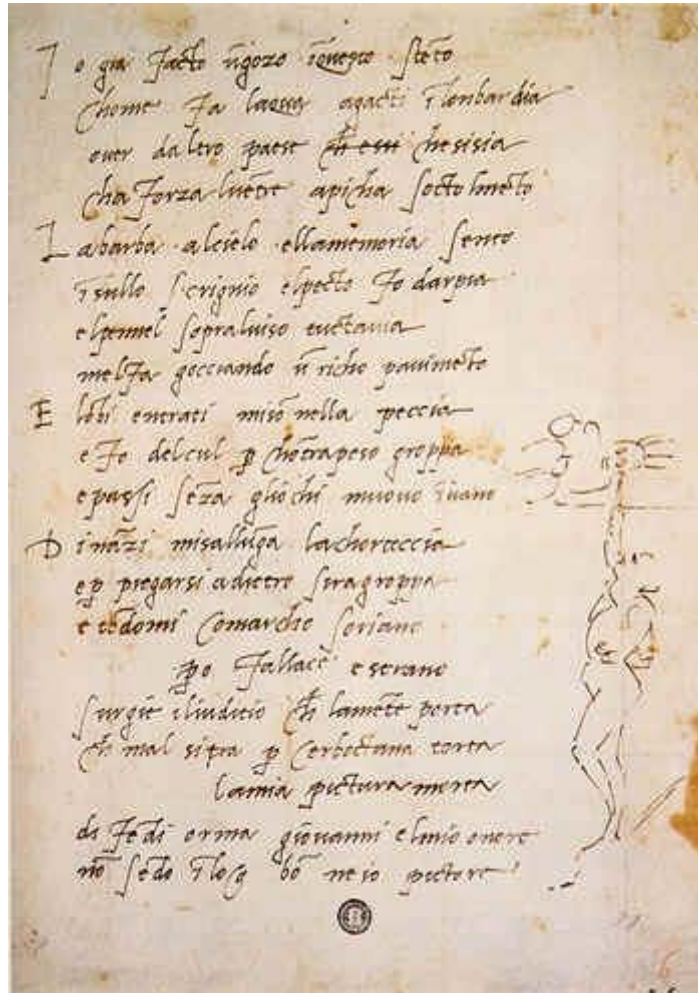 Io gia facto ūgozo īquesto stēto
chome fa lacqua agacti ī lonbardia
over daltro paese ch̄ essi chesisia
cha forza lvētre apicha socto lmēto
La barba alcielo ellamemoria sento
īsullo scrignio elpecto fo darpia
elpennel sopralviso tuctavia
melfa gocciando ū richo pavimēto
E lōbi entrati misō nella peccia
e fo delcul p̱ chōtrapeso groppa
e passi sēza gliochi muovo īvano
Dināzi misallūga lachorteccia
e p̱ piegarsi adietro siragroppa
e tēdomi comarcho soriano
p̱o fallace e strano
surgie iliuditio ch̄ lamēte porta
ch̄ mal sitra p̱ cerboctana torta
lamia pictura morta
difēdi orma giovanni elmio onore
nō sēdo ī loco bō ne io pictore